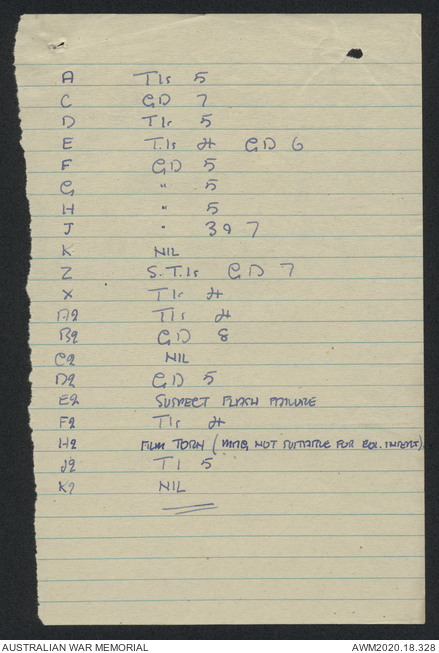 A TIs 5
C GD 7
D TIs 5
E T.Is 4 GD 6
F GD 5
G " 5
H " 5
J " 3 9 7
K NIL
Z S.T.Is GD 7
X TIs 4
A2 TIs 4
B2 GD 8
C2 NIL
D2 GD 5
E2 SUSPECT FLASH FAILURE
F2 TIs 4
H2 FILM TORN ( NOT SUITABLE FOR
J2 TI 5
K2 NIL
AUSTRALIAN WAR MEMORIAL AWM2020.18.328